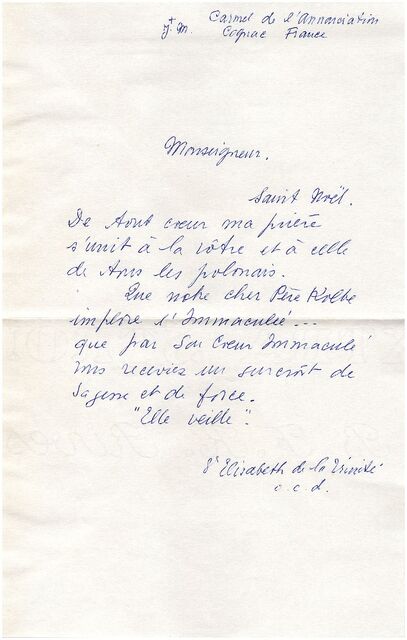 Carmel de l'Annonciation
J.†M. Cognac France
Monseigneur.
Saint Noël.
De tout cœur ma prière
s'unit à la vôtre et à celle
de tous les polonais.
Que notre cher Père Kolbe
implore l'Immaculée...
que par son Cœur Immaculé
vous receviez un surcroît de
sagesse et de force.
"Elle veille".
Sr Elisabeth de la Trinité
o.c.d.